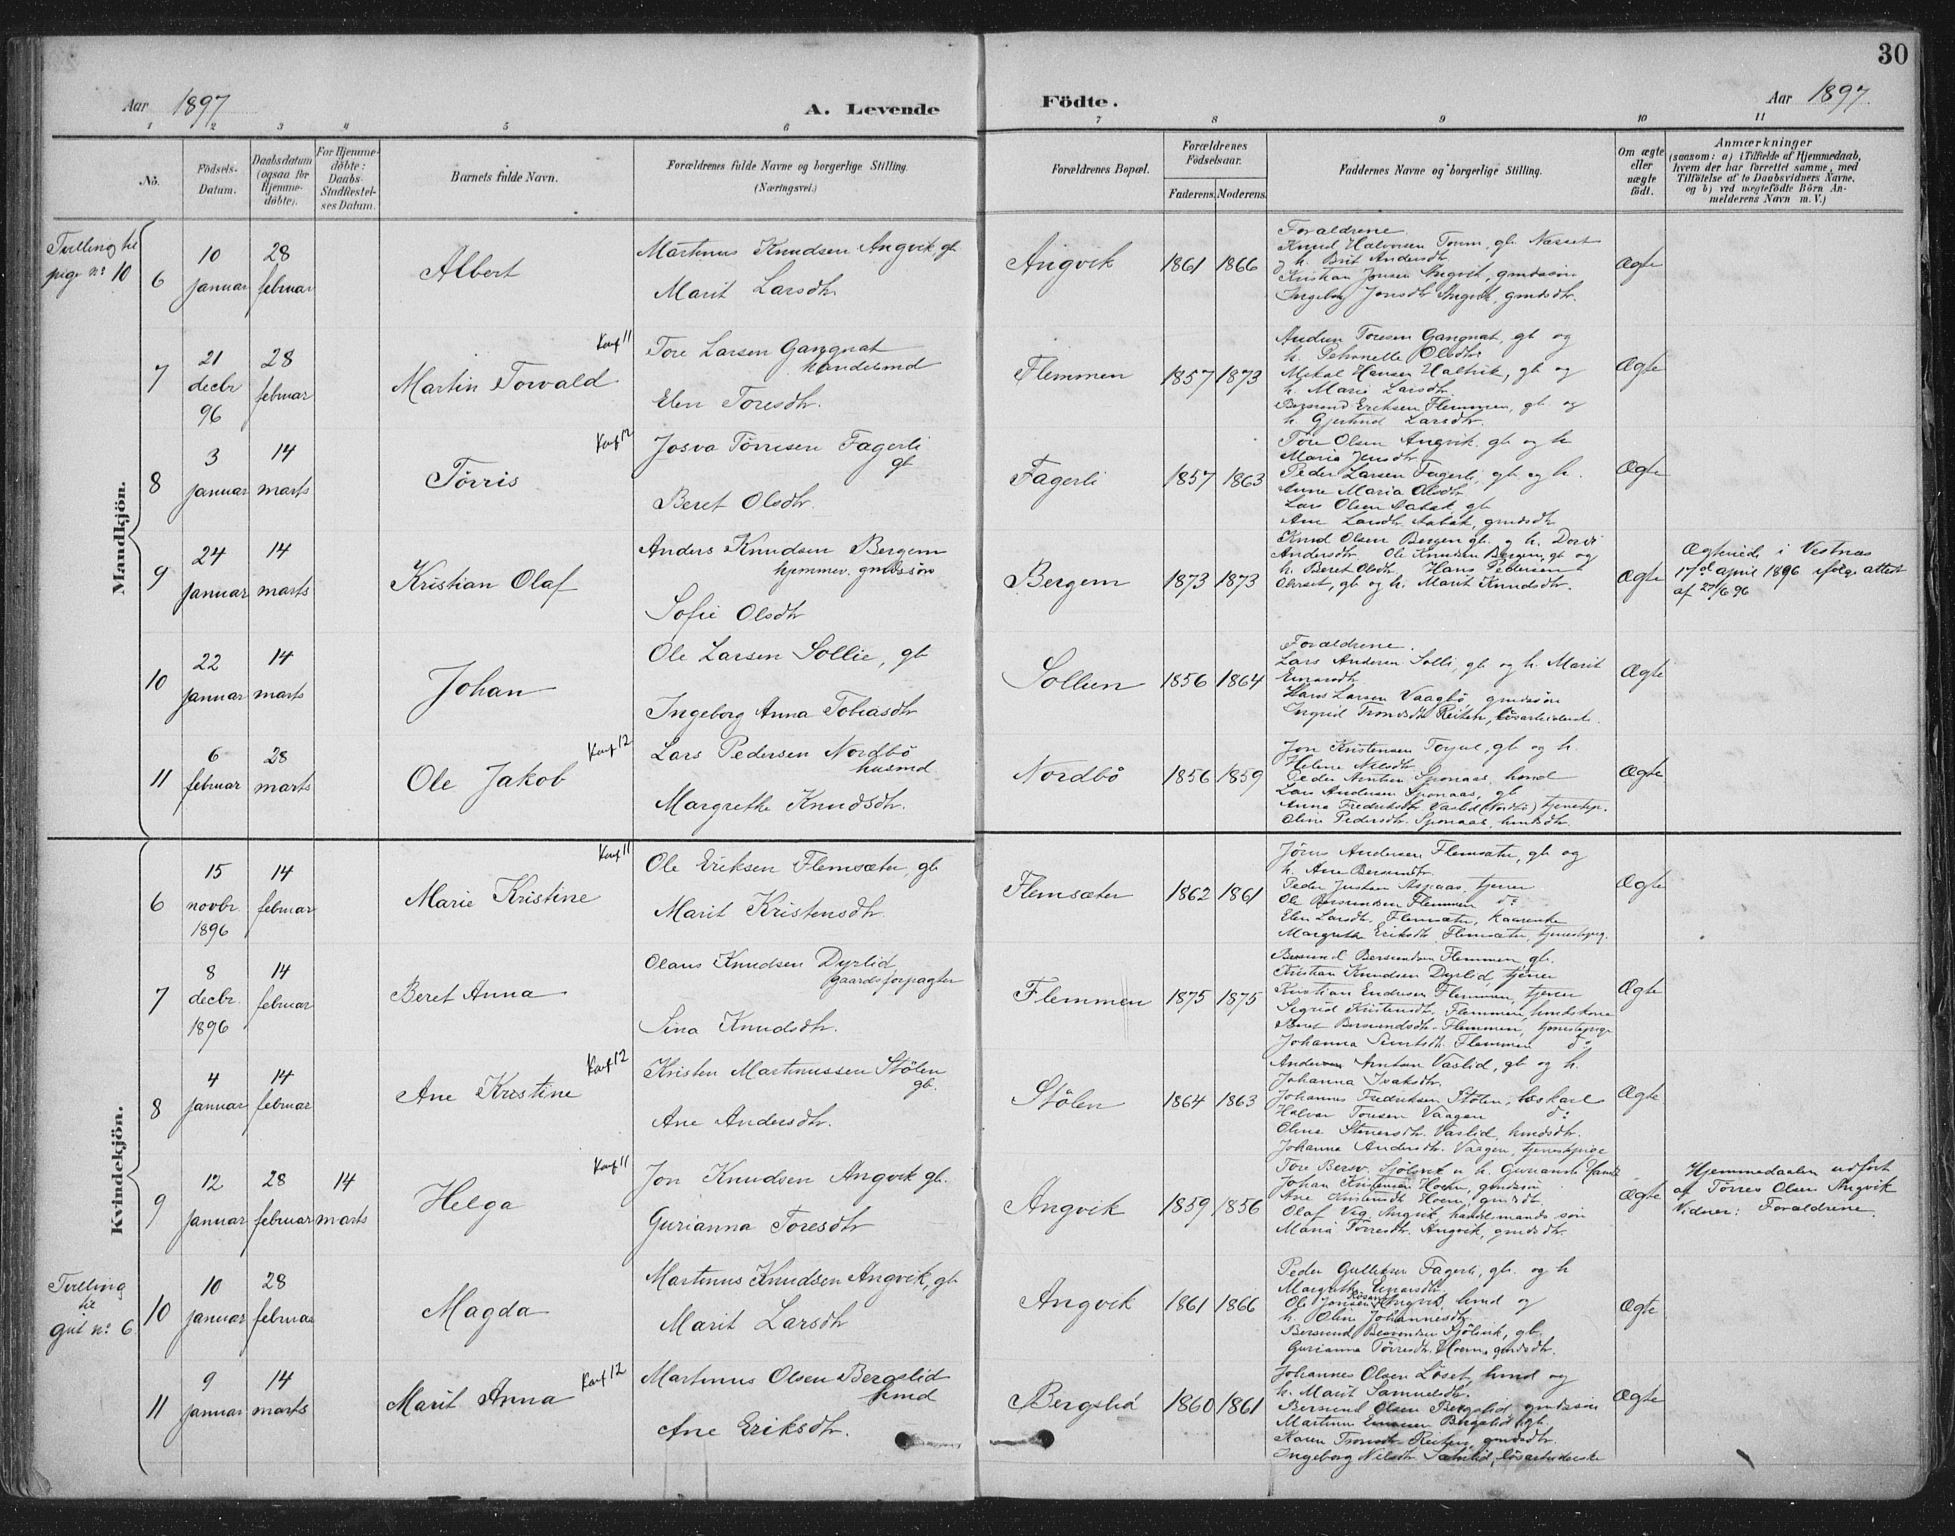 30
Aar 1897
A. Levende
Födte.
Aar 1897.
1 2 3 4 5 6 7 8 9 10 11
No.
Födsels-
Datum.
Daabsdatum
(ogsaa for
Hjemme-
döbte).
For Hjemme-
döbte:
Daabs-
Stadfæstel-
ses Datum.
Barnets fulde Navn.
Forældrenes fulde Navne og borgerlige Stilling.
(Næringsvei.)
Forældrenes Bopæl.
Forældrenes
Födselsaar.
Faderens. Moderens.
Faddernes Navne og borgerlige Stilling.
Om ægte
eller
uægte
födt.
Anmærkninger
(saasom: a) i Tilfælde af Hjemmedaab,
hvem der har forrettet samme, med
Tilföielse af to Daabsvidners Navne,
og b) ved uegtefödte Börn An-
melderens Navn m. V.)
Mandkjön.
Tvilling til
pige No 10
6
10
januar
28
februar
Albert
Martinus Knudsen Angvik, gb
Marit Larsdtr
Angvik
1861 1866
Forældrene.
Knud Halvorsen Torm, gb. Næsset
og h. Brit Andersdtr
Kristian Jonsen Angvik, gmdssön
Ingeborg Jonsdtr Angvik, gmdsdtr.
Ægte
7
21
decbr
96
28
februar
Martin Torvald
Konf 11
Tore Larsen Gangnat
handelsmd
Elen Toresdtr.
Flemmen
1857 1873
Andreas Toresen Gangnat, gb og
h. Petronelle Olsdtr
Mikal Hansen Haltvik, gb og
h. Marie Larsdtr
Bersvend Eriksen Flemmen, gb. og
h. Gjertrud Larsdtr.
Ægte
8
3
januar
14
marts
Tørris
Konf 12
Josva Tørresen Fagerli
gb
Beret Olsdtr.
Fagerli
1857 1863
Tore Olsen Angvik gb og h
Maria Jensdtr
Peder Larsen Fagerli, gb og h.
Anne Maria Olsdtr
Lars Olsen
Ane Larsdtr
Ægte
9
24
januar
14
marts
Kristian Olaf
Anders Knudsen Bergem
hjemmev. gmdssön
Sofie Olsdtr
Bergem
1873 1873
Knud Olsen Bergem gb. og h. Dordi
Andersdtr Ole Knudsen Bergem, gb og
h. Beret Olsdtr, Hans Pettersen
gb og h. Marit Knudsdtr.
Ægte
Ægteviede i Vestnæs
17d april 1896 ifølge attest
af 27/6 96
10
22
januar
14
marts
Johan
Ole Larsen Sollie, gb
Ingeborg Anna Tobiasdtr
Sollien
1856 1864
Forældrene.
Lars Andersen Solli, gb og h. Marit
Einarsdtr
Hans Larsen Vaagbø, gmdssön
Ingrid Trondsdtr Reiten, løsarbeiderske.
Ægte
11
6
februar
28
marts
Ole Jakob
Konf 12
Lars Pedersen Nordbö
husmd
Margrethe Knudsdtr.
Nordbö
1856 1859
Jon Kristensen gb og h.
Helene Nilsdtr
Peder Arntsen Sponaas, hmd
Lars Andersen Sponaas, gb
Anna Fredriksdtr Vaslid (Nordbö) tjenestep.
Oline Pedersdtr. Sponaas, hmdsdtr.
Ægte
Kvindekjön.
6
15
novbr.
1896
14
februar
Marie Kristine
Konf 11
Ole Eriksen Flemsæter, gb
Marit Kristensdtr.
Flemsæter
1862 1861
Jörns Andersen Flemsæter, gb og
h. Ane Bersvendtr.
Peder Justsen Aspaas tjener
Ole Bersvendsen Flemmen do
Elen Larsdtr. Flemsæter, kaarenke
Margrethe Eriksdtr. Flemsæter, tjenestepig.
Ægte
7
8
decbr.
1896
14
februar
Beret Anna
Olaus Knudsen Dyrlid,
gaardsforpagter
Sina Knudsdtr.
Flemmen
1875 1875
Bersvend Bersvendsen Flemmen gb.
Kristian Knudsen Dyrlid, tjener
Kristian Endresen Flemmen, tjener
Sigrid Kristensdtr. Flemmen, hmdskone
Beret Bersvendsdtr. Flemmen, tjenestepige
Johanna Flemmen do
Ægte
8
4
januar
14
februar
Ane Kristine
Konf 12
Kristen Martinussen Stölen
gb.
Ane Andersdtr.
Stölen
1864 1863
Andersen Arntsen Vaslid, gb og h.
Johanna Isaksdtr.
Johannes Fredriksen Stölen, løskarl
Halvor Toresen Vaagen do
Oline Vaslid, hmdsdtr.
Johanna Andersdtr. Vaagen, tjenestepige
Ægte
9
12
januar
28
februar
14
marts
Helga
Konf 11
Jon Knudsen Angvik gb.
Gurianna Toresdtr
Angvik
1859 1856
Tore Bersv. Sjölsvik og h. Gurianna
Johan Kristensen Hoem, gmdssön
Ane Kristensdtr Hoem, gmdsdtr.
Olaf Vig, Angvik, handelsmands sön
Maria Törresdtr. Angvik, gmdsdtr.
Ægte
Hjemmedaaben udført
af Tørres Olsen Angvik
Vidner: Forældrene
Tvilling
til
gut No 6
10
10
januar
28
februar
Magda
Martinus Knudsen Angvik, gb
Marit Larsdtr
Angvik
1861 1866
Peder Gulliksen Fagerli, gb. og h
Margrethe Einarsdtr.
Ole Jonsen Angvik, hmd og
h. Olin Johannesdtr.
Bersvend Bersvendsen Sjölsvik, gb.
Gurianna Törresdtr. Hoem, gmdsdtr.
Ægte
11
9
januar
14
marts
Marit Anna
Konf 12
Martinus Olsen Bergslid
hmd
Ane Eriksdtr.
Bergslid
1860 1861
Johannes Olsen Løset, hmd og
h. Marit Samuelsdtr.
Bersvend Olsen Bergslid gmdssön
Martinus Bergslid, gb.
Karen Tronsdtr Reiten, gmdsdtr.
Ingeborg Nilsdtr. løsarbeiderske
Ægte